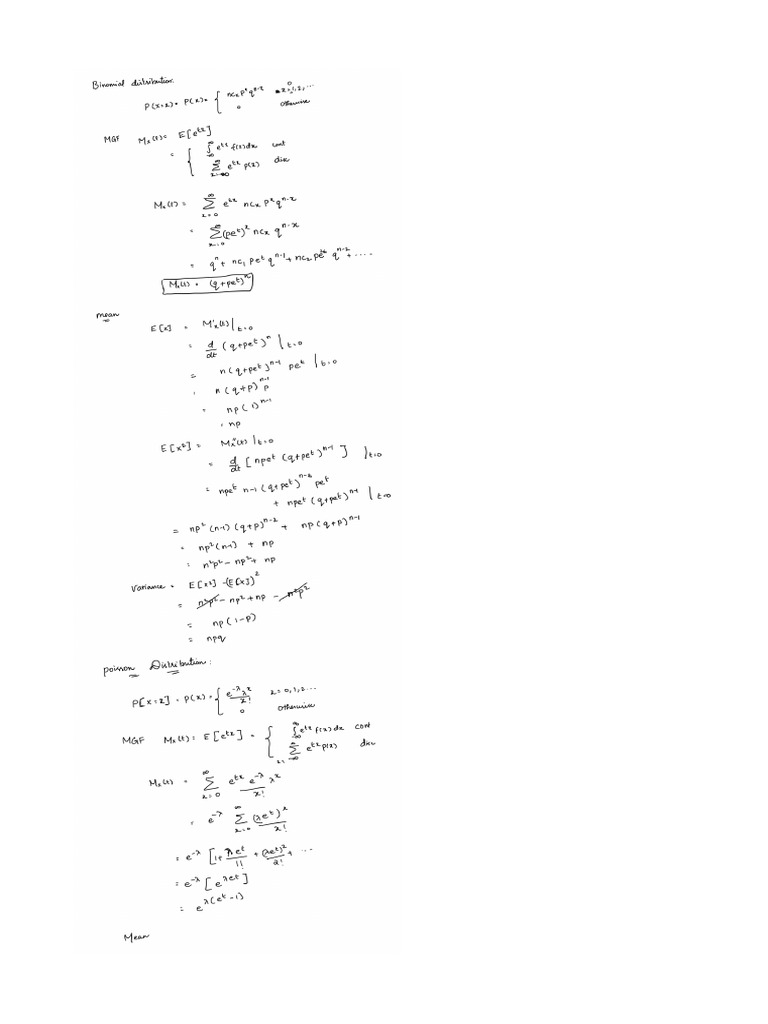 Binomial distribution
P(X=x) = P(x) = { nCx p^x q^(n-x) x=0,1,2,...
0 otherwise
MGF Mx(t) = E[e^(tx)]
= { ∫_(-∞)^∞ e^(tx) f(x)dx cont
∑_(x=-∞)^∞ e^(tx) p(x) dis
Mx(t) = ∑_(x=0)^∞ e^(tx) nCx p^x q^(n-x)
= ∑_(x=0)^∞ (pe^t)^x nCx q^(n-x)
= q^n + nC1 pe^t q^(n-1) + nC2 pe^(t) q^(n-2) + ....
Mx(t) = (q+pe^t)^n
mean
E[x] = M'x(t)|t=0
= d/dt (q+pe^t)^n |t=0
= n(q+pe^t)^(n-1) pe^t |t=0
= n(q+p)^(n-1) p
= np(1)^(n-1)
= np
E[x^2] = Mx''(t)|t=0
= d/dt [npe^t (q+pe^t)^(n-1)] |t=0
= npe^t n-1(q+pe^t)^(n-2) pe^t
+ npe^t (q+pe^t)^(n-1) |t=0
= np^2 (n-1) (q+p)^(n-2) + np(q+p)^(n-1)
= np^2(n-1) + np
= n^2p^2 - np^2 + np
Variance = E[x^2] - (E[x])^2
= n^2p^2 - np^2 + np - n^2p^2
= np(1-p)
= npq
poisson Distribution:
P[X=x] = P(x) = { e^(-λ) λ^x / x! x=0,1,2...
0 otherwise
MGF Mx(t) = E[e^(tx)] = { ∫_(-∞)^∞ e^(tx) f(x)dx cont
∑_(x=-∞)^∞ e^(tx) p(x) disc
Mx(t) = ∑_(x=0)^∞ e^(tx) e^(-λ) λ^x / x!
= e^(-λ) ∑_(x=0)^∞ (λe^t)^x / x!
= e^(-λ) [1+ λe^t/1! + (λe^t)^2/2! + ...
= e^(-λ) [e^(λe^t)]
= e^(λ(e^t-1))
Mean